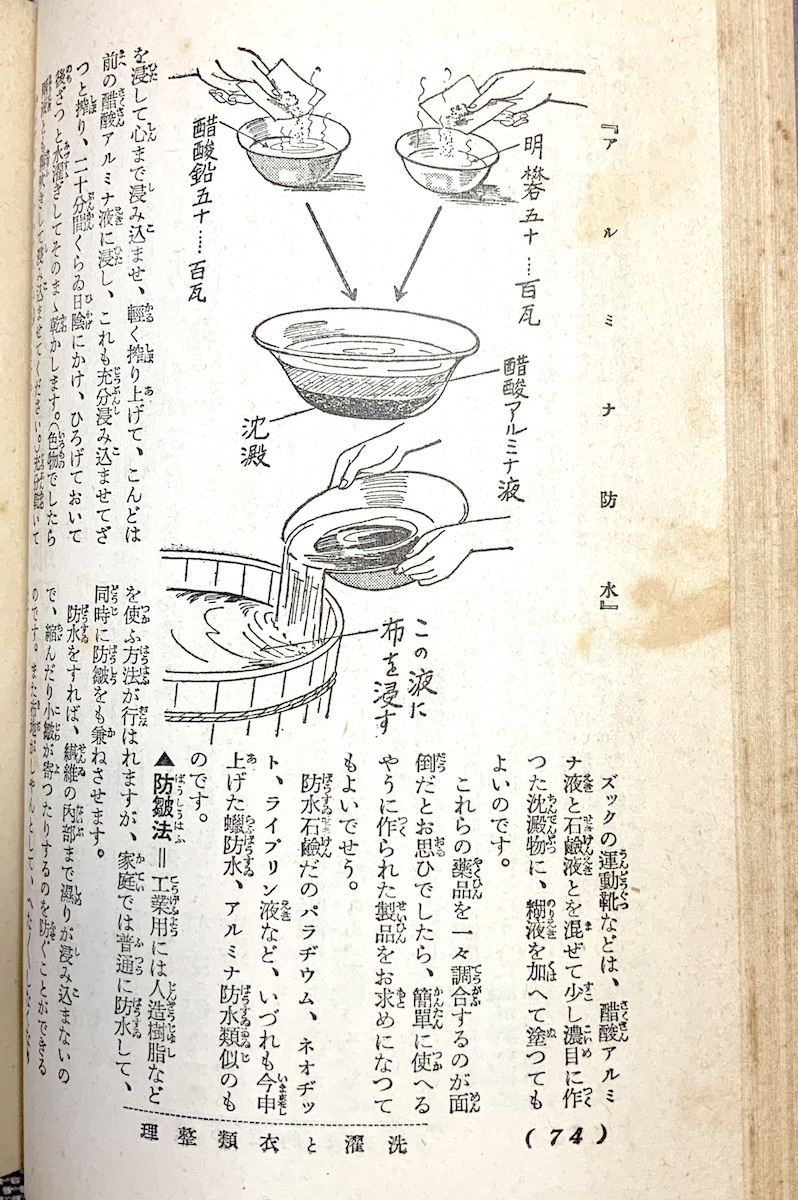 『アルミナ防水』
明礬五十…百瓦
醋酸鉛五十…百瓦
醋酸アルミナ液
沈澱
この液に
布を浸す
を浸して心まで浸み込ませ、輕く搾り上げて、こんどは
前の醋酸アルミナ液に浸し、これも充分浸み込ませてざ
つと搾り、二十分間くらゐ日陰にかけ、ひろげておいて
後ざつと水濯ぎしてそのまゝ乾かします。(色物でしたら
きして浸み込ませてください。)充分乾いて
ズックの運動靴などは、醋酸アルミ
ナ液と石鹼液とを混ぜて少し濃目に作
つた沈澱物に、糊液を加へて塗つても
よいのです。
これらの藥品を一々調合するのが面
倒だとお思ひでしたら、簡單に使へる
やうに作られた製品をお求めになつて
もよいでせう。
防水石鹼だのパラヂウム、ネオヂッ
ト、ライプリン液など、いづれも今申
上げた蠟防水、アルミナ防水類似のも
のです。
▲防皺法＝工業用には人造樹脂など
を使ふ方法が行はれますが、家庭では普通に防水して、
同時に防皺をも兼ねさせます。
防水をすれば、纖維の內部まで濕りが浸み込まないの
で、縮んだり小皺が寄つたりするのを防ぐことができる
のです。また布地がしやんとして、
洗濯と衣類整理
(74)